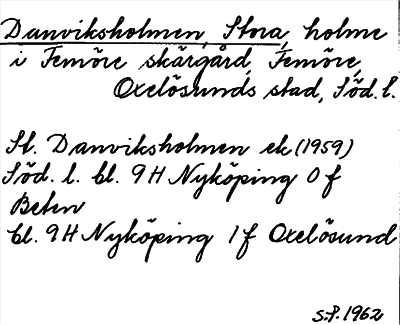 Danviksholmen, Stora, holme
i Femöre skärgård, Femöre,
Oxelösunds stad, Söd. l.
St. Danviksholmen ek (1959)
Söd. l. bl. 9H Nyköping 0f
Beten
bl. 9H Nyköping 1f Oxelösund
S.P. 1962